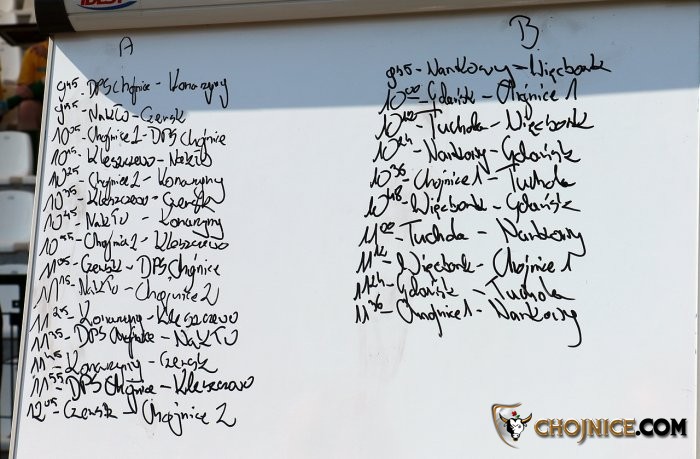 A
9 45 - DPS Chojnice - Konarzyny
9 55 - Nakło - Czersk
10 05 - Chojnice 2 - DPS Chojnice
10 15 - Kleszczewo - Nakło
10 25 - Chojnice 2 - Konarzyny
10 35 - Kleszczewo - Czersk
10 45 - Nakło - Konarzyny
10 55 - Chojnice 2 - Kleszczewo
11 05 - Czersk - DPS Chojnice
11 15 - Nakło - Chojnice 2
11 25 - Konarzyny - Kleszczewo
11 35 - DPS Chojnice - Nakło
11 45 - Konarzyny - Czersk
11 55 - DPS Chojnice - Kleszczewo
12 05 - Czersk - Chojnice 2
B
9 45 - Nankowy - Więcbork
10 00 - Gdańsk - Chojnice 1
10 12 - Tuchola - Więcbork
10 24 - Nankowy - Gdańsk
10 36 - Chojnice 1 - Tuchola
10 48 - Więcbork - Gdańsk
11 00 - Tuchola - Nankowy
11 12 - Więcbork - Chojnice 1
11 24 - Gdańsk - Tuchola
11 36 - Chojnice 1 - Nankowy
CHOJNICE.COM